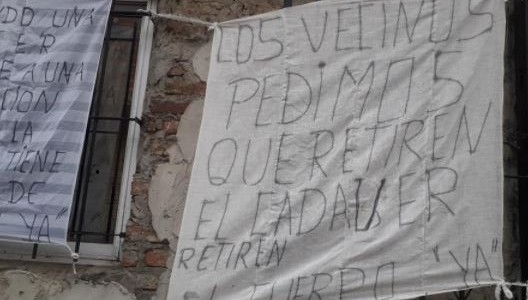 UNA
E R
E A UNA
LA
TIENE
DE
YA"
LOS VECINOS
PEDIMOS
QUE RETIREN
EL CADAVER
RETIREN
EL CUERPO "YA"